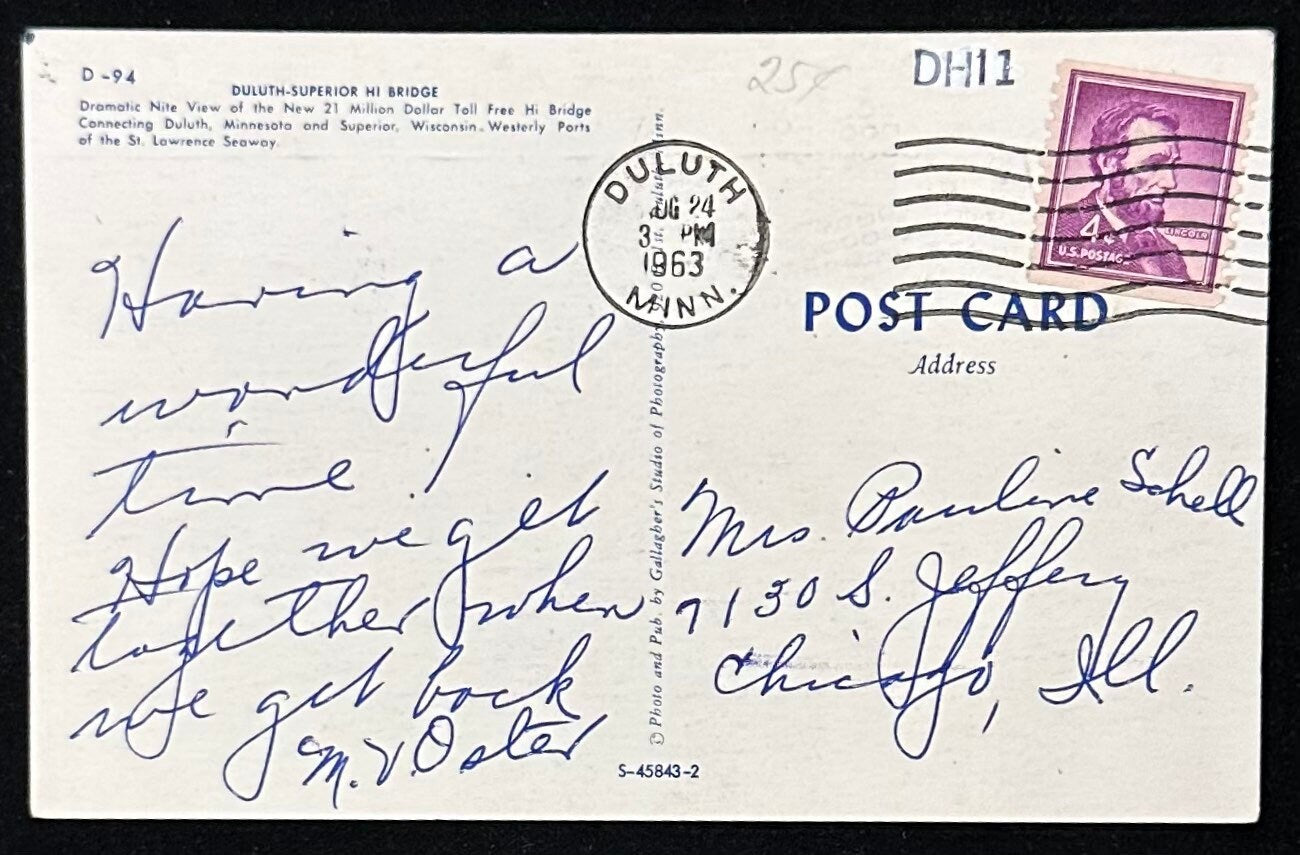 D-94
DULUTH-SUPERIOR HI BRIDGE
Dramatic Nite View of the New 21 Million Dollar Toll Free Hi Bridge
Connecting Duluth, Minnesota and Superior, Wisconsin. Westerly Ports
of the St. Lawrence Seaway.
25¢
DH11
DULUTH
AUG 24
3 PM
1963
MINN.
4¢
LINCOLN
U.S. POSTAGE
POST CARD
Address
Having a
wonderful
time
Hope we get
together when
we get back
M. V. Oster
© Photo and Pub. by Gallagher's Studio of Photography
Mrs. Pauline Schell
9130 S. Jeffery
Chicago, Ill.
S-45843-2